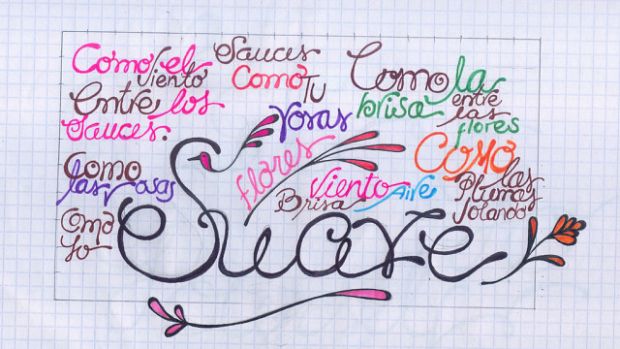 Como el
viento
Entre los
sauces.
Sauces
Como
Tu
Como la
brisa
entre
las
flores
rosas
Como
las rosas
flores
Viento
Brisa
Aire
Como
las
Plumas
Volando
Como
Yo
Suave